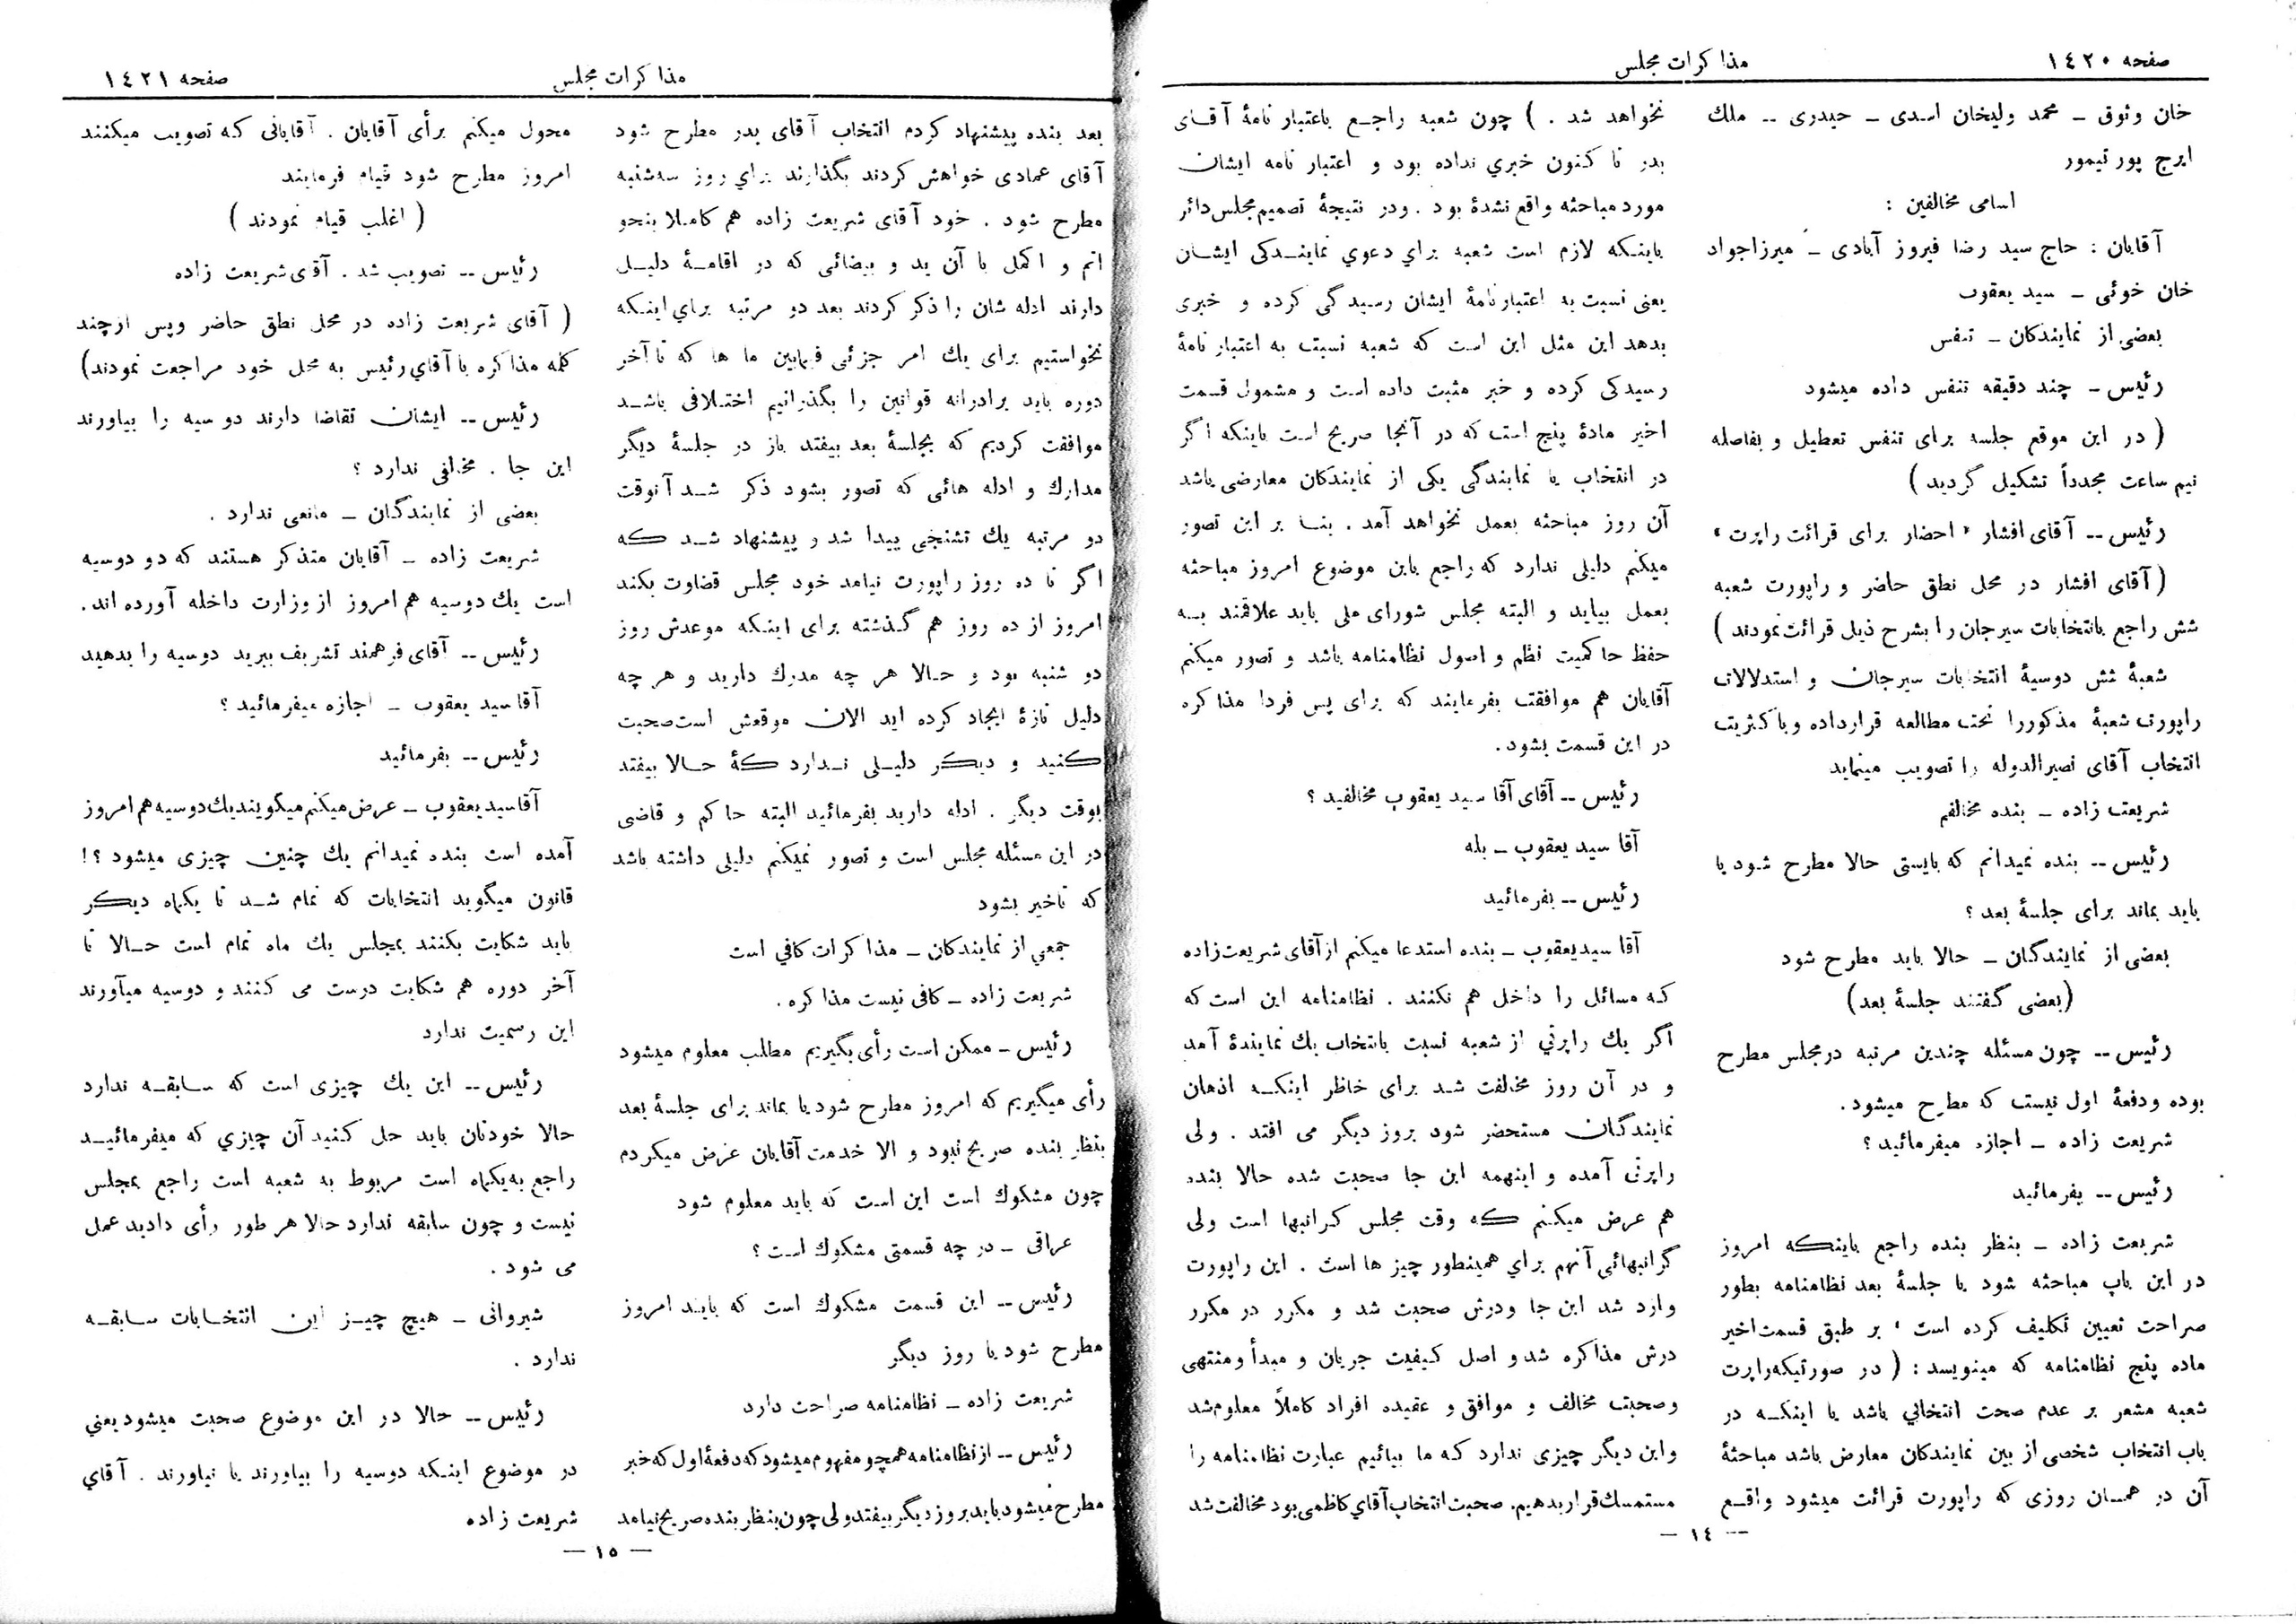 صفحه ١٤٢٠
مذاکرات مجلس
خان وثوق ـ محمد ولیخان اسدی ـ حیدری ـ ملك
ایرج پور تیمور
اسامی مخالفین :
آقایان : حاج سید رضا فیروز آبادی ـ میرزاجواد
خان خوئی ـ سید یعقوب
بعضی از نمایندکان ـ تنفس
رئیس ـ چند دقیقه تنفس داده میشود
( در این موقع جلسه برای تنفس تعطیل و بفاصله
نیم ساعت مجدداً تشکیل گردید )
رئیس ــ آقای افشار « احضار برای قرائت راپرت »
(آقای افشار در محل نطق حاضر و راپورت شعبه
شش راجع بانتخابات سیرجان را بشرح ذیل قرائت نمودند )
شعبهٔ شش دوسیهٔ انتخابات سیرجان و استدلالات
راپورت شعبهٔ مذکوررا تحت مطالعه قرارداده و باکثریت
انتخاب آقای نصیرالدوله را تصویب مینماید
شریعت زاده ـ بنده مخالفم
رئیس ــ بنده نمیدانم که بایستی حالا مطرح شود یا
باید بماند برای جلسهٔ بعد ؟
بعضی از نمایندگان ـ حالا باید مطرح شود
(بعضی گفتند جلسهٔ بعد)
رئیس ــ چون مسئله چندین مرتبه درمجلس مطرح
بوده ودفعهٔ اول نیست که مطرح میشود.
شریعت زاده ـ اجازه میفرمائید ؟
رئیس ــ بفرمائید
شریعت زاده ـ بنظر بنده راجع باینکه امروز
در این باپ مباحثه شود یا جلسهٔ بعد نظامنامه بطور
صراحت تعیین تکلیف کرده است ، بر طبق قسمت اخیر
ماده پنج نظامنامه که مینویسد : ( در صورتیکه راپرت
شعبه مشعر بر عدم صحت انتخابی باشد یا اینکه در
باب انتخاب شخصی از بین نمایندکان معارض باشد مباحثهٔ
آن در همان روزی که راپورت قرائت میشود واقع
نخواهد شد . ) چون شعبه راجع باعتبار نامهٔ آقای
بدر تا کنون خبري نداده بود و اعتبار نامه ایشان
مورد مباحثه واقع نشدۀ بود . ودر نتیجهٔ تصمیم مجلس دائر
باینکه لازم است شعبه براي دعوي نمایندکی ایشان
یعنی نسبت به اعتبارنامهٔ ایشان رسیدگی کرده و خبری
بدهد این مثل این است که شعبه نسبت به اعتبار نامهٔ
رسیدکی کرده و خبر مثبت داده است و مشمول قسمت
اخیر مادۀ پنج است که در آنجا صریح است باینکه اگر
در انتخاب یا نمایندگی یکی از نمایندکان معارضی باشد
آن روز مباحثه بعمل نخواهد آمد . بنا بر این تصور
میکنم دلیلی ندارد که راجع باین موضوع امروز مباحثه
بعمل بیاید و البته مجلس شورای ملی باید علاقمند به
حفظ حاکمیت نظم و اصول نظامنامه باشد و تصور میکنم
آقایان هم موافقت بفرمایند که برای پس فردا مذاکره
در این قسمت بشود.
رئیس ــ آقای آقا سید یعقوب مخالفید ؟
آقا سید یعقوب ـ بله
رئیس ــ بفرمائید
آقا سید یعقوب ـ بنده استدعا میکنم از آقای شریعت زاده
که مسائل را داخل هم نکنند . نظامنامه این است که
اگر یك راپرتي از شعبه نسبت بانتخاب یك نمایندۀ آمد
و در آن روز مخالفت شد برای خاظر اینکه اذهان
نمایندگان مستحضر شود بروز دیگر می افتد . ولی
راپرتی آمده و اینهمه این جا صحبت شده حالا بنده
هم عرض میکنم که وقت مجلس کرانبها است ولی
گرانبهائی آنهم براي همینطور چیز ها است . این راپورت
وارد شد این جا ودرش صحبت شد و مکرر در مکرر
درش مذاکره شد و اصل کیفیت جریان و مبدأ ومنتهی
وصحبت مخالف و موافق و عقیده افراد کاملاً معلوم شد
واین دیگر چیزی ندارد که ما بیائیم عبارت نظامنامه را
مستمسك قرار بدهیم. صحبت انتخاب آقاي کاظمی بود مخالفت شد
— ١٤ —
مذاکرات مجلس
صفحه ١٤٢١
بعد بنده پیشنهاد کردم انتخاب آقای بدر مطرح شود
آقای عمادی خواهش کردند بگذارند براي روز سه‌شنبه
مطرح شود . خود آقای شریعت زاده هم کاملا بنحو
اتم و اکمل با آن ید و بیضائی که در اقامهٔ دلیل
دارند ادله شان را ذکر کردند بعد دو مرتبه براي اینکه
نخواستیم برای یك امر جزئی فیمابین ما ها که تا آخر
دوره باید برادرانه قوانین را بگذرانیم اختلافی باشد
موافقت کردیم که بجلسهٔ بعد بیفتد باز در جلسهٔ دیگر
مدارك و ادله هائی که تصور بشود ذکر شد آنوقت
دو مرتبه یك تشنجی پیدا شد و پیشنهاد شد که
اگر تا ده روز راپورت نیامد خود مجلس قضاوت بکند
امروز از ده روز هم گذشته برای اینکه موعدش روز
دو شنبه بود و حالا هر چه مدرك دارید و هر چه
دلیل تازۀ ایجاد کرده اید الان موقعش است صحبت
کنید و دیکر دلیلی ندارد کهٔ حالا بیفتد
بوقت دیگر . ادله دارید بفرمائید البته حاکم و قاضی
در این مسئله مجلس است و تصور نمیکنم دلیلی داشته باشد
که تاخیر بشود
جمعي از نمایندکان ـ مذاکرات کافي است
شریعت زاده ـ کافی نیست مذاکره .
رئیس ـ ممکن است رأی بگیریم مطلب معلوم میشود
رأی میگیریم که امروز مطرح شود یا بماند برای جلسهٔ بعد
بنظر بنده صریح نبود و الا خدمت آقایان عرض میکردم
چون مشکوك است این است که باید معلوم شود
عراقی ـ در چه قسمتی مشکوك است ؟
رئیس ــ این قسمت مشکوك است که بایند امروز
مطرح شود یا روز دیگر
شریعت زاده ـ نظامنامه صراحت دارد
رئیس ــ از نظامنامه همچو مفهوم میشود که دفعهٔ اول که خبر
مطرح میشود باید بروز دیگر بیفتد ولی چون بنظر بنده صریح نیامد
محول میکنم برأی آقایان . آقایانی که تصویب میکنند
امروز مطرح شود قیام فرمایند
( اغلب قیام نمودند )
رئیس ــ تصویب شد . آقای شریعت زاده
( آقای شریعت زاده در محل نطق حاضر وپس از چند
کلمه مذاکره با آقاي رئیس به محل خود مراجعت نمودند)
رئیس ــ ایشان تقاضا دارند دوسیه را بیاورند
این جا . مخالفی ندارد ؟
بعضی از نمایندگان ـ مانعی ندارد .
شریعت زاده ـ آقایان متذکر هستند که دو دوسیه
است یك دوسیه هم امروز از وزارت داخله آورده اند.
رئیس ــ آقای فرهمند تشریف ببرید دوسیه را بدهید
آقا سید یعقوب ـ اجازه میفرمائید ؟
رئیس ــ بفرمائید
آقا سید یعقوب ـ عرض میکنم میگویند یك دوسیه هم امروز
آمده است بنده نمیدانم یك چنین چیزی میشود ؟!
قانون میگوید انتخابات که تمام شد تا یکماه دیکر
باید شکایت بکنند بمجلس یك ماه تمام است حالا تا
آخر دوره هم شکایت درست می کنند و دوسیه میآورند
این رسمیت ندارد
رئیس ــ این یك چیزی است که سابقه ندارد
حالا خودتان باید حل کنید آن چیزي که میفرمائید
راجع به یکماه است مربوط به شعبه است راجع بمجلس
نیست و چون سابقه ندارد حالا هر طور رأی دادید عمل
می شود .
شیروانی ـ هیچ چیز این انتخابات سابقه
ندارد .
رئیس ــ حالا در این موضوع صحبت میشود یعني
در موضوع اینکه دوسیه را بیاورند یا نیاورند . آقاي
شریعت زاده
— ١٥ —